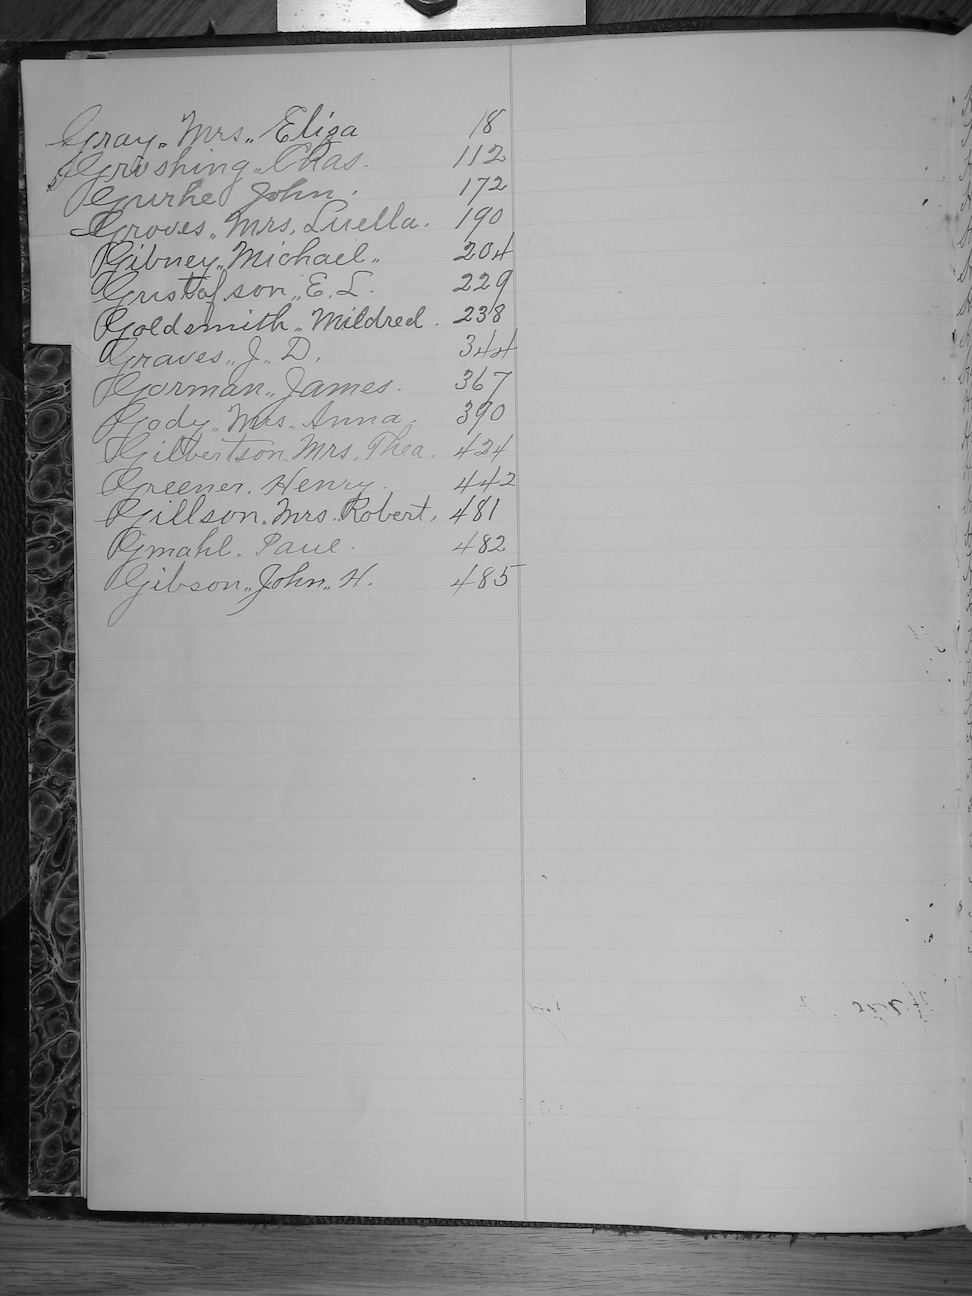 Gray, Mrs., Eliza 18
Grushing, Chas. 112
Gurhe John. 172
Groves, Mrs. Luella. 190
Gibney, Michael, 204
Gustafson, E. L. 229
Goldsmith, Mildred. 238
Graves, J. D. 344
Gorman, James. 367
Gody, Mrs. Anna, 390
Gilbertson, Mrs. Thea. 424
Greener, Henry. 442
Gillson, Mrs. Robert, 481
Gmahl, Paul. 482
Gibson, John, H. 485